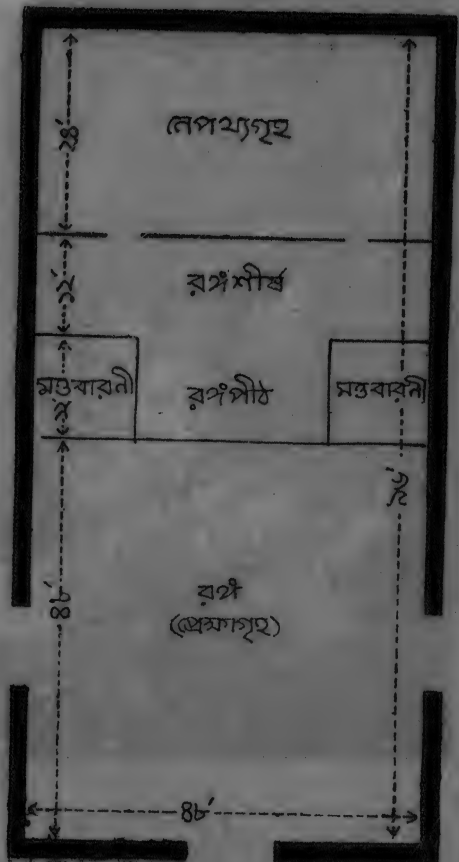 নেপথ্যগৃহ
২৪′
রঙ্গশীর্ষ
১২′
মত্তবারনী রঙ্গপীঠ মত্তবারনী
১২′
৯৬′
৪৮′
রঙ্গ
(প্রেক্ষাগৃহ)
৪৮′